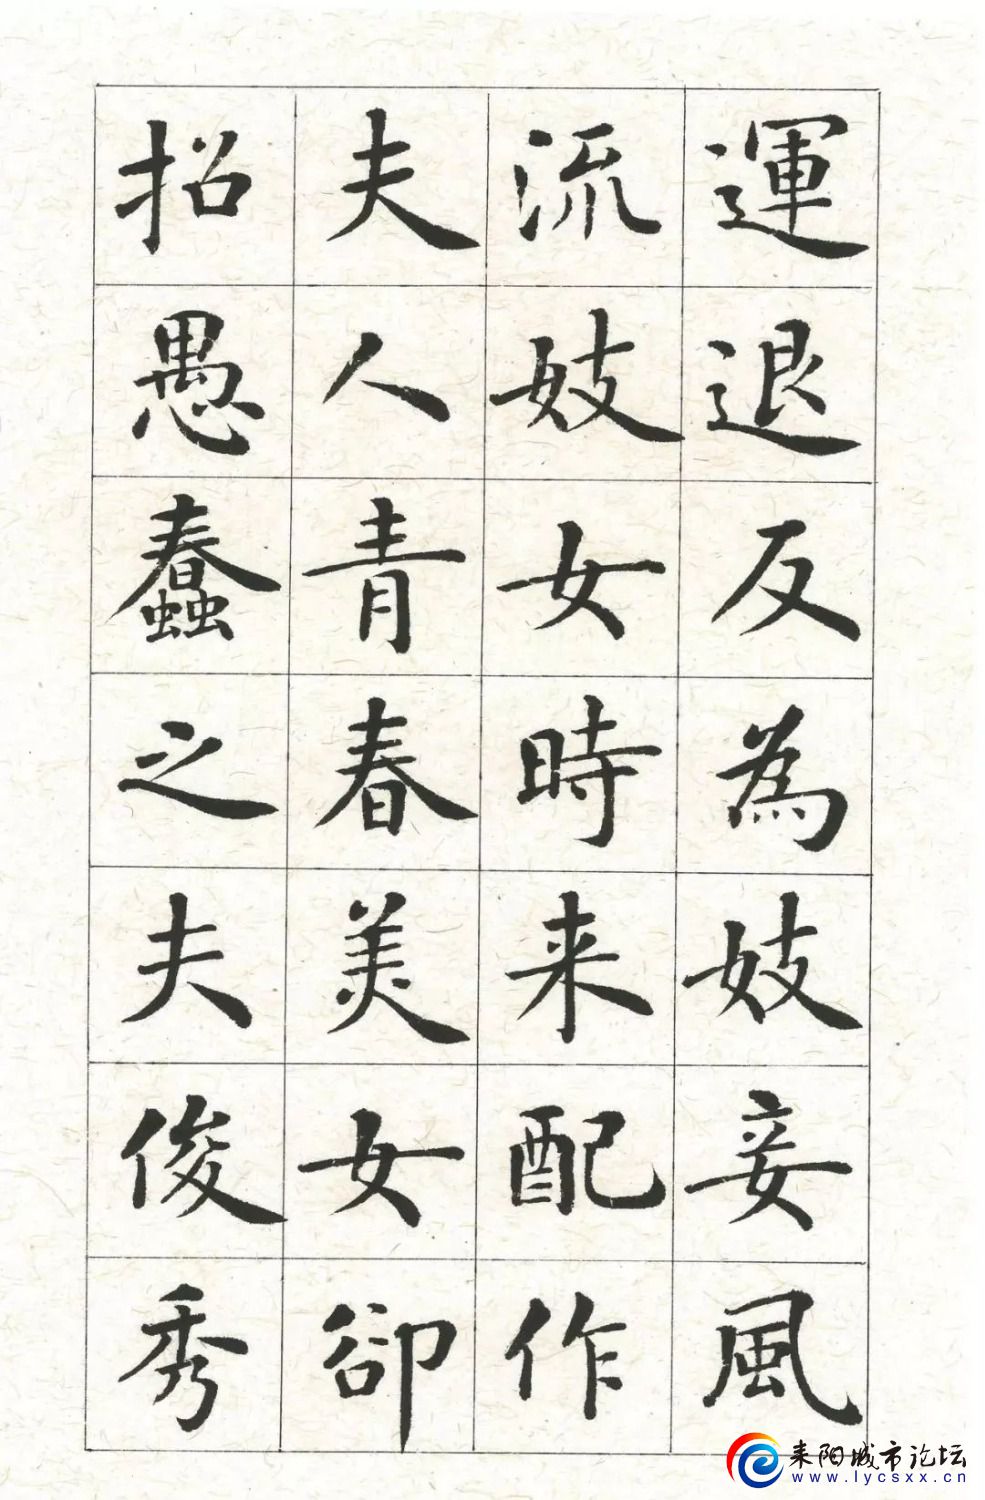 運退反為妓妾風
流妓女時来配作
夫人青春美女卻
招愚蠢之夫俊秀
耒阳城市论坛
www.lycsxx.cn